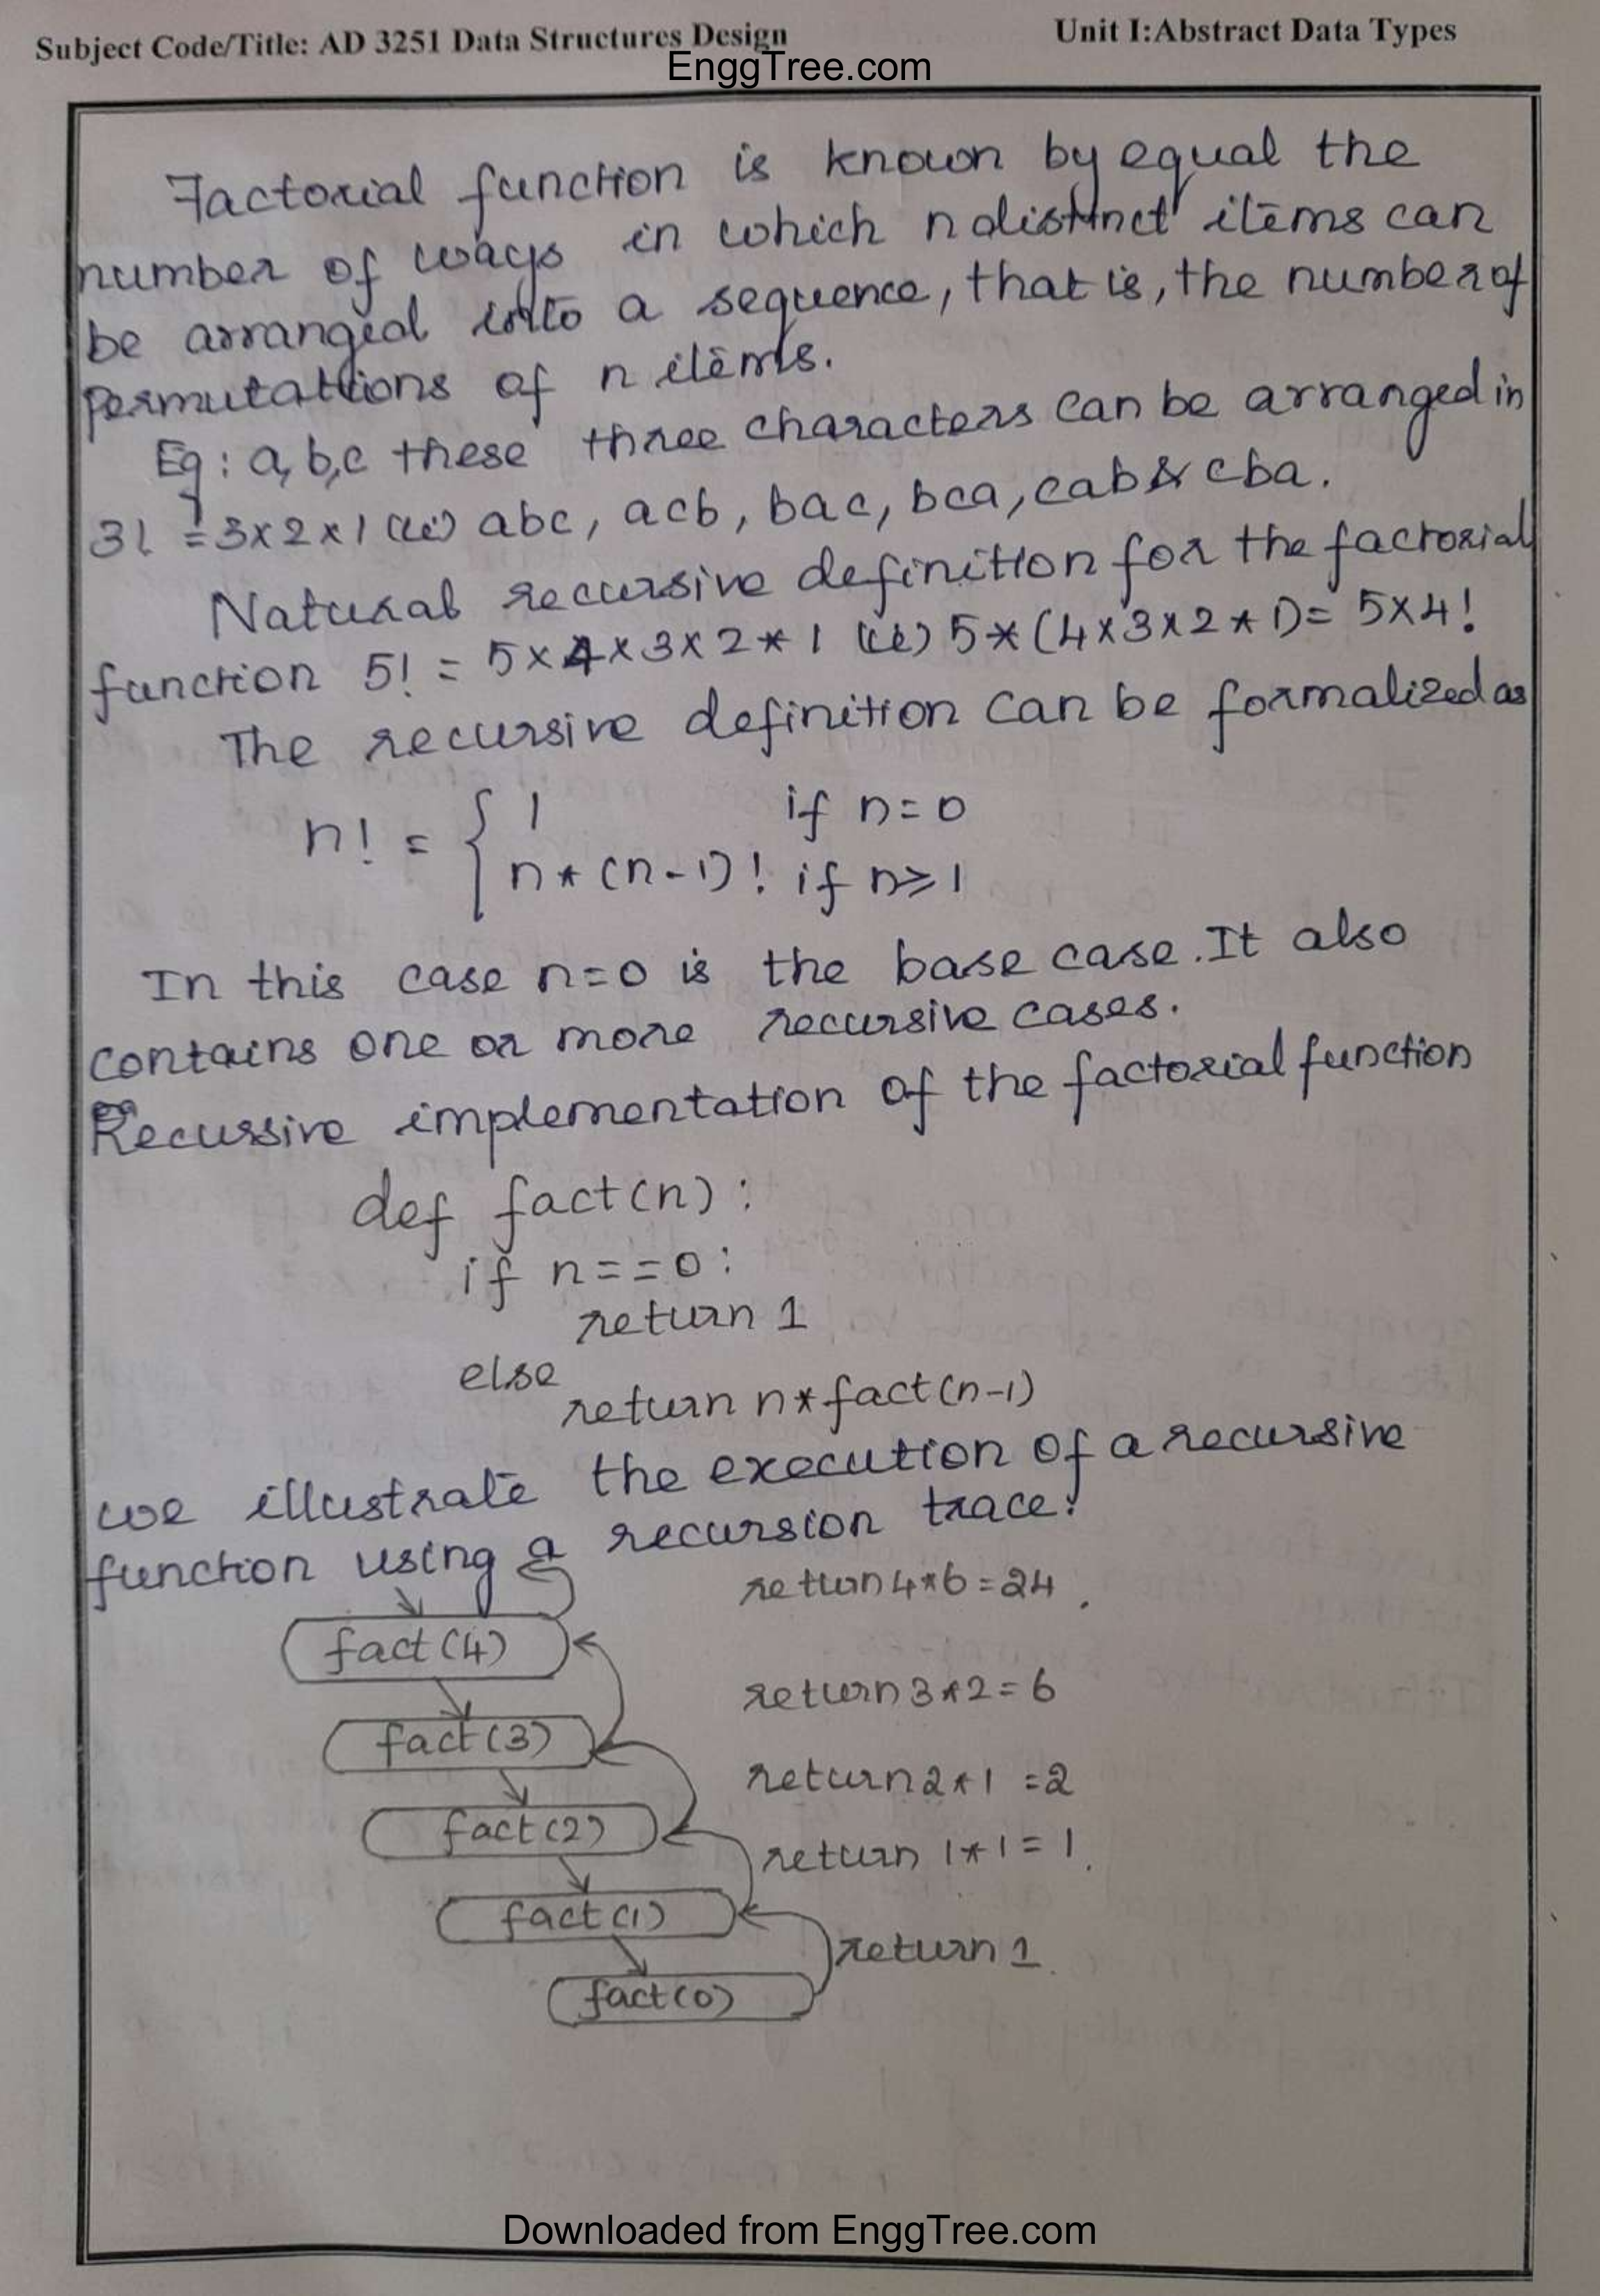 Subject Code/Title: AD 3251 Data Structures Design
Unit I:Abstract Data Types
EnggTree.com
Factorial function is known by equal the
number of ways in which n distinct items can
be arranged into a sequence, that is, the number of
permutations of n items.
Eg : a, b, c these three characters can be arranged in
3! = 3x2x1 (ie) abc, acb, bac, bca, cab & cba.
Natural recursive definition for the factorial
function 5! = 5x4x3x2*1 (ie) 5*(4x3x2*1) = 5x4!
The recursive definition can be formalized as
n! = { 1 if n=0
n*(n-1)! if n≥1
In this case n=0 is the base case. It also
contains one or more recursive cases.
Recussive implementation of the factorial function
def fact(n):
if n==0:
return 1
else
return n*fact(n-1)
we illustrate the execution of a recursive
function using a recursion trace:
return 4*6=24
fact(4)
return 3*2=6
fact(3)
return 2*1=2
fact(2)
return 1*1=1
fact(1)
return 1
fact(0)
Downloaded from EnggTree.com